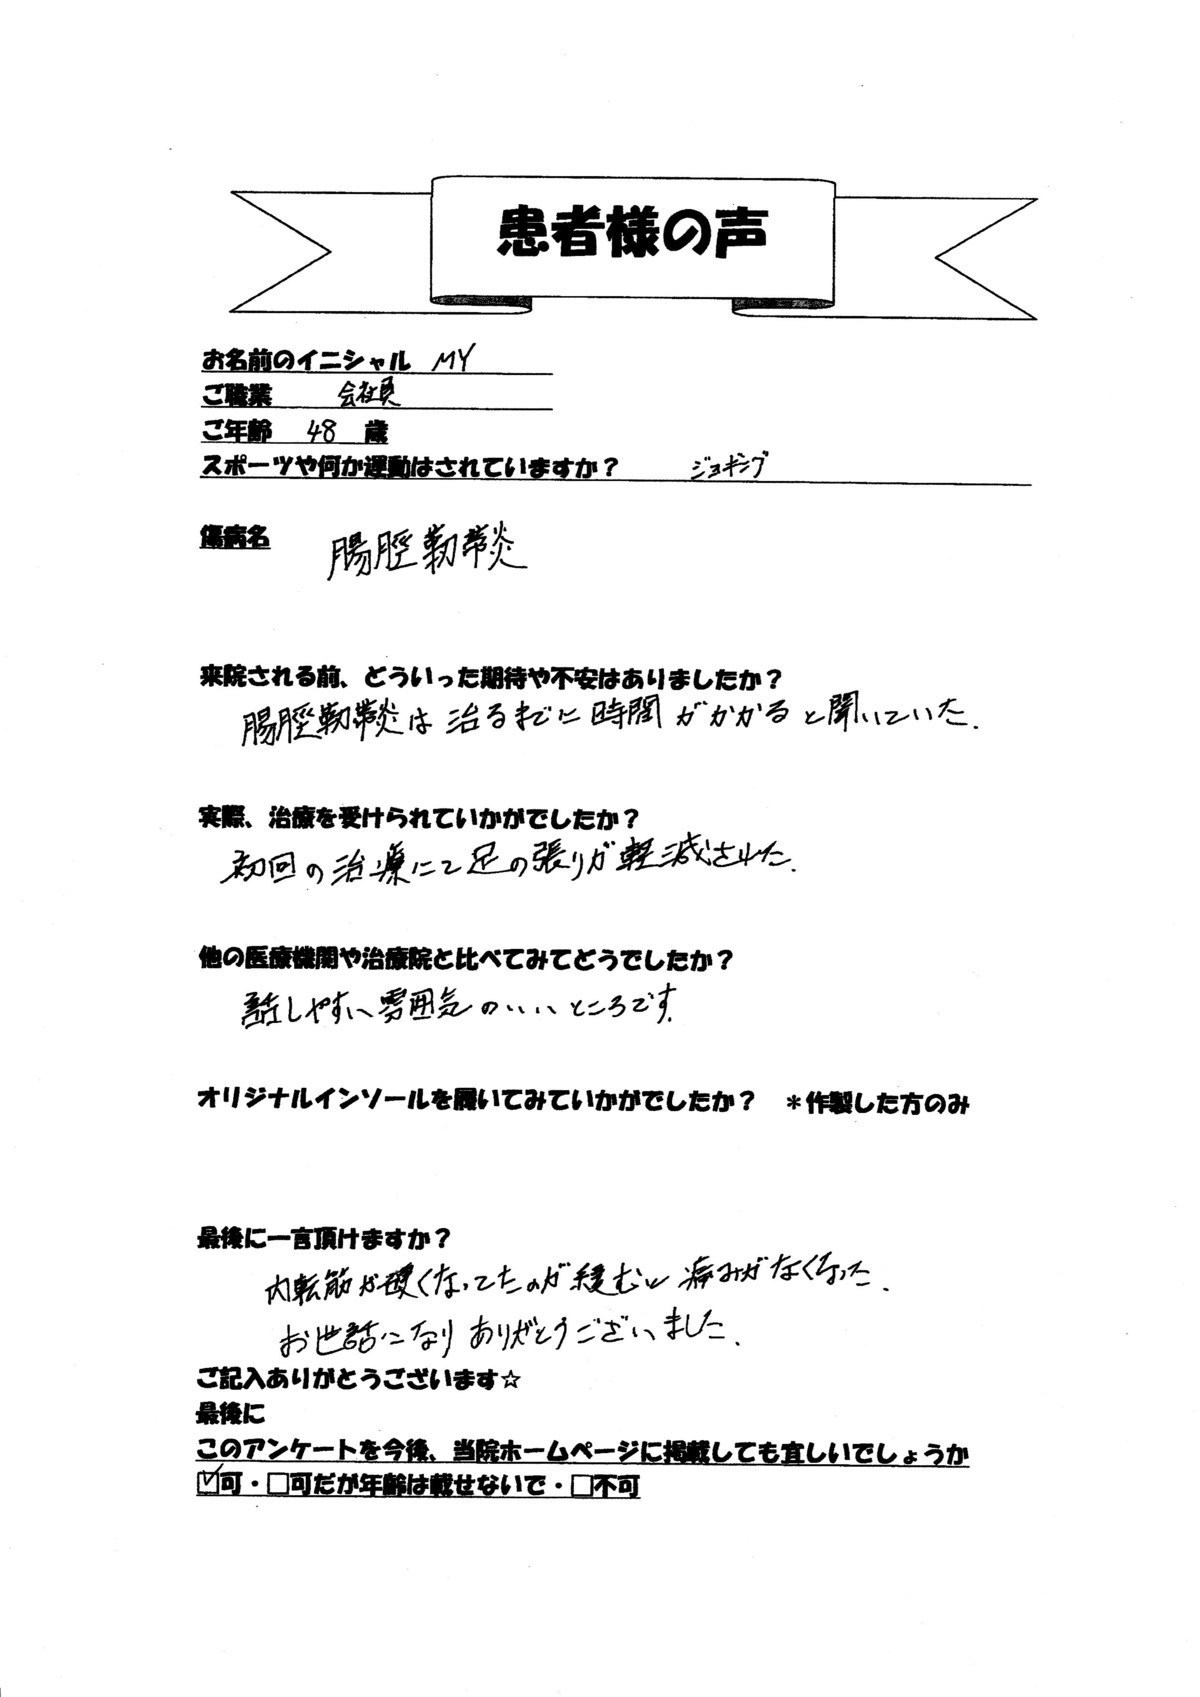 患者様の声
お名前のイニシャル MY
ご職業 会社員
ご年齢 48 歳
スポーツや何か運動はされていますか? ジョギング
傷病名 腸脛靭帯炎
来院される前、どういった期待や不安はありましたか?
腸脛靭帯炎は治るまでに時間がかかると聞いていた.
実際、治療を受けられていかがでしたか?
初回の治療にて足の張りが軽減された.
他の医療機関や治療院と比べてみてどうでしたか?
話しやすい雰囲気のいいところです.
オリジナルインソールを履いてみていかがでしたか? *作製した方のみ
最後に一言頂けますか?
内転筋が硬くなってたのが緩むと痛みがなくなった.
お世話になりありがとうございました.
ご記入ありがとうございます☆
最後に
このアンケートを今後、当院ホームページに掲載しても宜しいでしょうか
☑可・□可だが年齢は載せないで・□不可